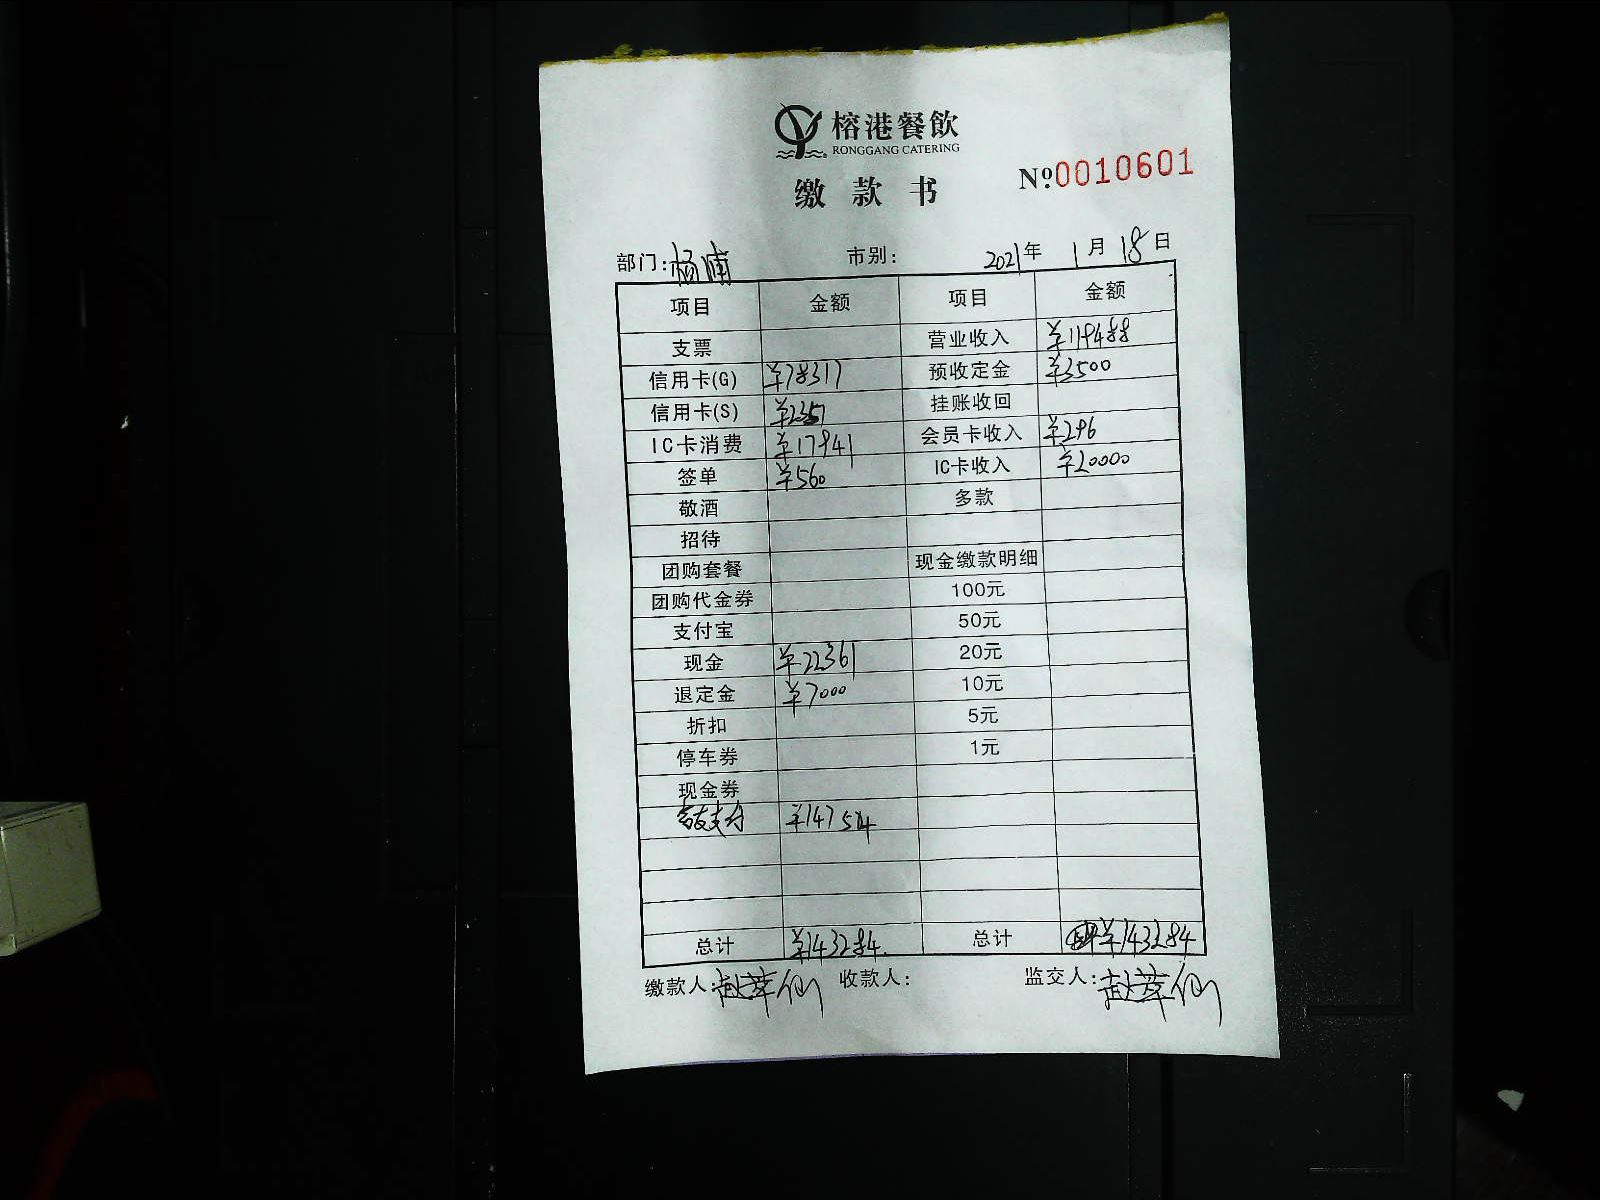 榕港餐飲
RONGGANG CATERING
缴款书
№0010601
部门:杨浦 市别: 2021年 1月 18日
项目 金额 项目 金额
支票 营业收入 ¥119488
信用卡(G) ¥78317 预收定金 ¥3500
信用卡(S) ¥2351 挂账收回
IC卡消费 ¥17941 会员卡收入 ¥296
签单 ¥560 IC卡收入 ¥20000
敬酒 多款
招待
团购套餐 现金缴款明细
团购代金券 100元
支付宝 50元
现金 ¥22361 20元
退定金 ¥7000 10元
折扣 5元
停车券 1元
现金券
支付 ¥14754
总计 ¥143284. 总计 ¥143284
缴款人: 收款人: 监交人: